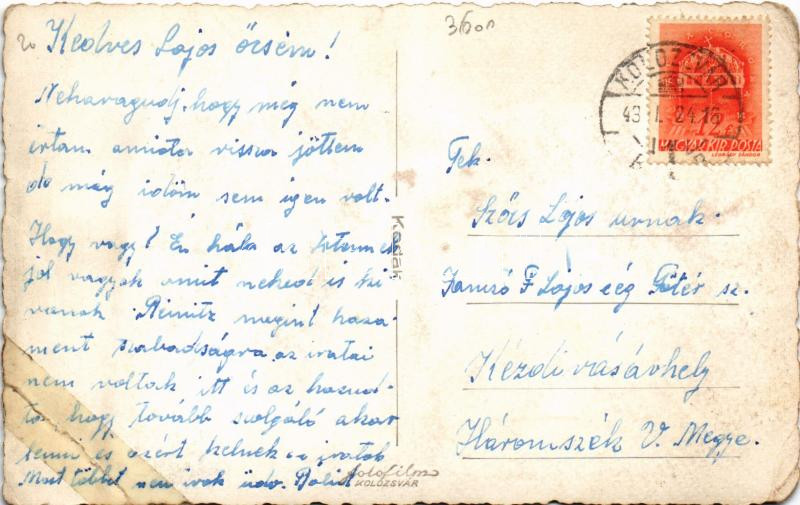 Kedves Lajos öcsém!
Neharagudj hogy még nem
irtam amiota vissza jöttem
de még időm sem igen volt.
Hogy vagy? Én hála az Istennek
jól vagyok amit neked is ki
vanok. Reinitz megint haza
ment szabadságra az iratai
nem voltak itt és az hozud
ta hogy tovább szolgáló akar
lenni és azért kelnek az iratok
Most többet nem irok üdv. Bálint
3600
KOLOZSVÁR
43 I. 24.16
12
MAGYAR KIR. POSTA
LÉGRÁDY SÁNDOR
Tek.
Szőcs Lajos urnak.
F. Lajos cég Főtér sz.
Kézdivásárhely
Háromszék V. Megye.
Kodak
Fotofilm
KOLOZSVÁR